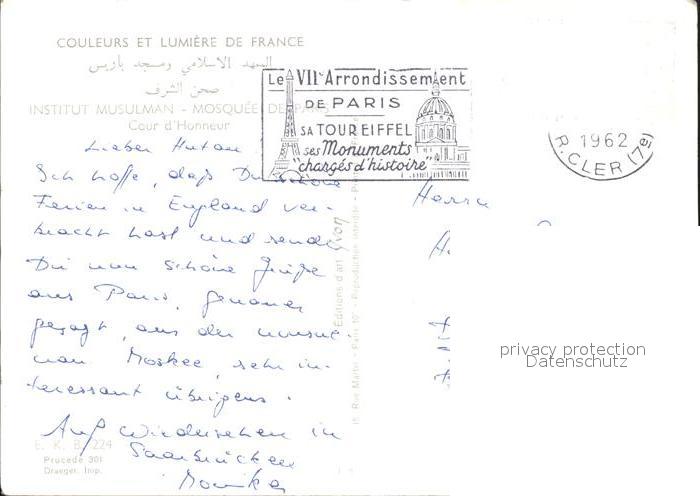 COULEURS ET LUMIÈRE DE FRANCE
المعهد الاسلامي ومسجد باريس
صحن الشرف
INSTITUT MUSULMAN - MOSQUÉE DE PARIS
Cour d'Honneur
Le VIIe Arrondissement
DE PARIS
SA TOUR EIFFEL
ses Monuments
"chargés d'histoire"
1962
R. CLER (7e)
Lieber
Ich hoffe, daß Du schöne
Ferien in England ver-
bracht hast und sende
Dir nun schöne Grüße
aus Paris, genauer
gesagt, aus der
Moskee, sehr in-
teressant übrigens.
Auf Wiedersehen in
Saarbrücken
Monika
Herrn
Editions d'art Yvon
15, Rue Martel - Paris 10e - Reproduction interdite
E. K. B. 224
Procédé 301
Draeger, Imp.
privacy protection
Datenschutz